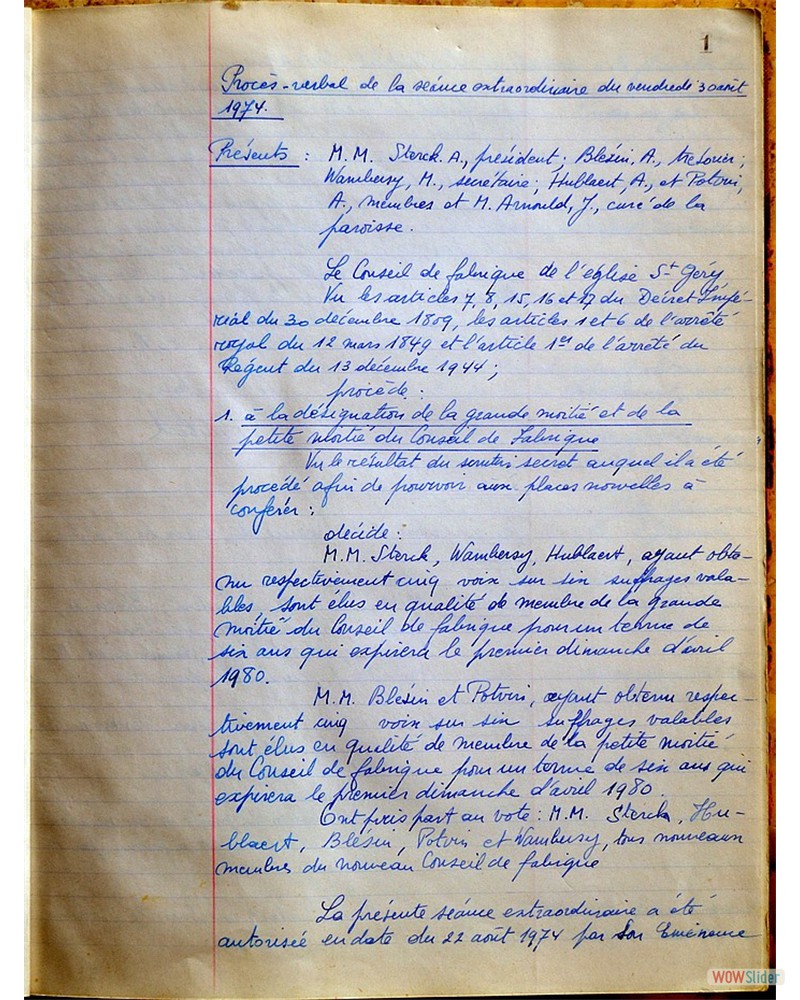 1
Procès-verbal de la séance extraordinaire du vendredi 30 août
1974.
Présents : M.M. Sterck. A., président ; Blésin, A., trésorier ;
Wambersy, M., secrétaire ; Hublaert, A., et Potvin,
A., membres et M. Arnould, J., curé de la
paroisse.
Le Conseil de fabrique de l'église St Géry
Vu les articles 7, 8, 15, 16 et 17 du Décret Impé-
rial du 30 décembre 1809, les articles 1 et 6 de l'arrêté
royal du 12 mars 1849 et l'article 1er de l'arrêté du
Régent du 13 décembre 1944 ;
procède :
1. à la désignation de la grande moitié et de la
petite moitié du Conseil de Fabrique
Vu le résultat du scrutin secret auquel il a été
procédé afin de pourvoir aux places nouvelles à
conférer :
décide :
M.M. Sterck, Wambersy, Hublaert, ayant obte-
nu respectivement cinq voix sur six suffrages vala-
bles, sont élus en qualité de membre de la grande
moitié du Conseil de fabrique pour un terme de
six ans qui expirera le premier dimanche d'avril
1980.
M.M. Blésin et Potvin, ayant obtenu respec-
tivement cinq voix sur six suffrages valables
sont élus en qualité de membre de la petite moitié
du Conseil de fabrique pour un terme de six ans qui
expirera le premier dimanche d'avril 1980.
Ont pris part au vote : M.M. Sterck, Hu-
blaert, Blésin, Potvin et Wambersy, tous nouveaux
membres du nouveau Conseil de fabrique
La présente séance extraordinaire a été
autorisée en date du 22 août 1974 par Son Eminence
WOWSlider